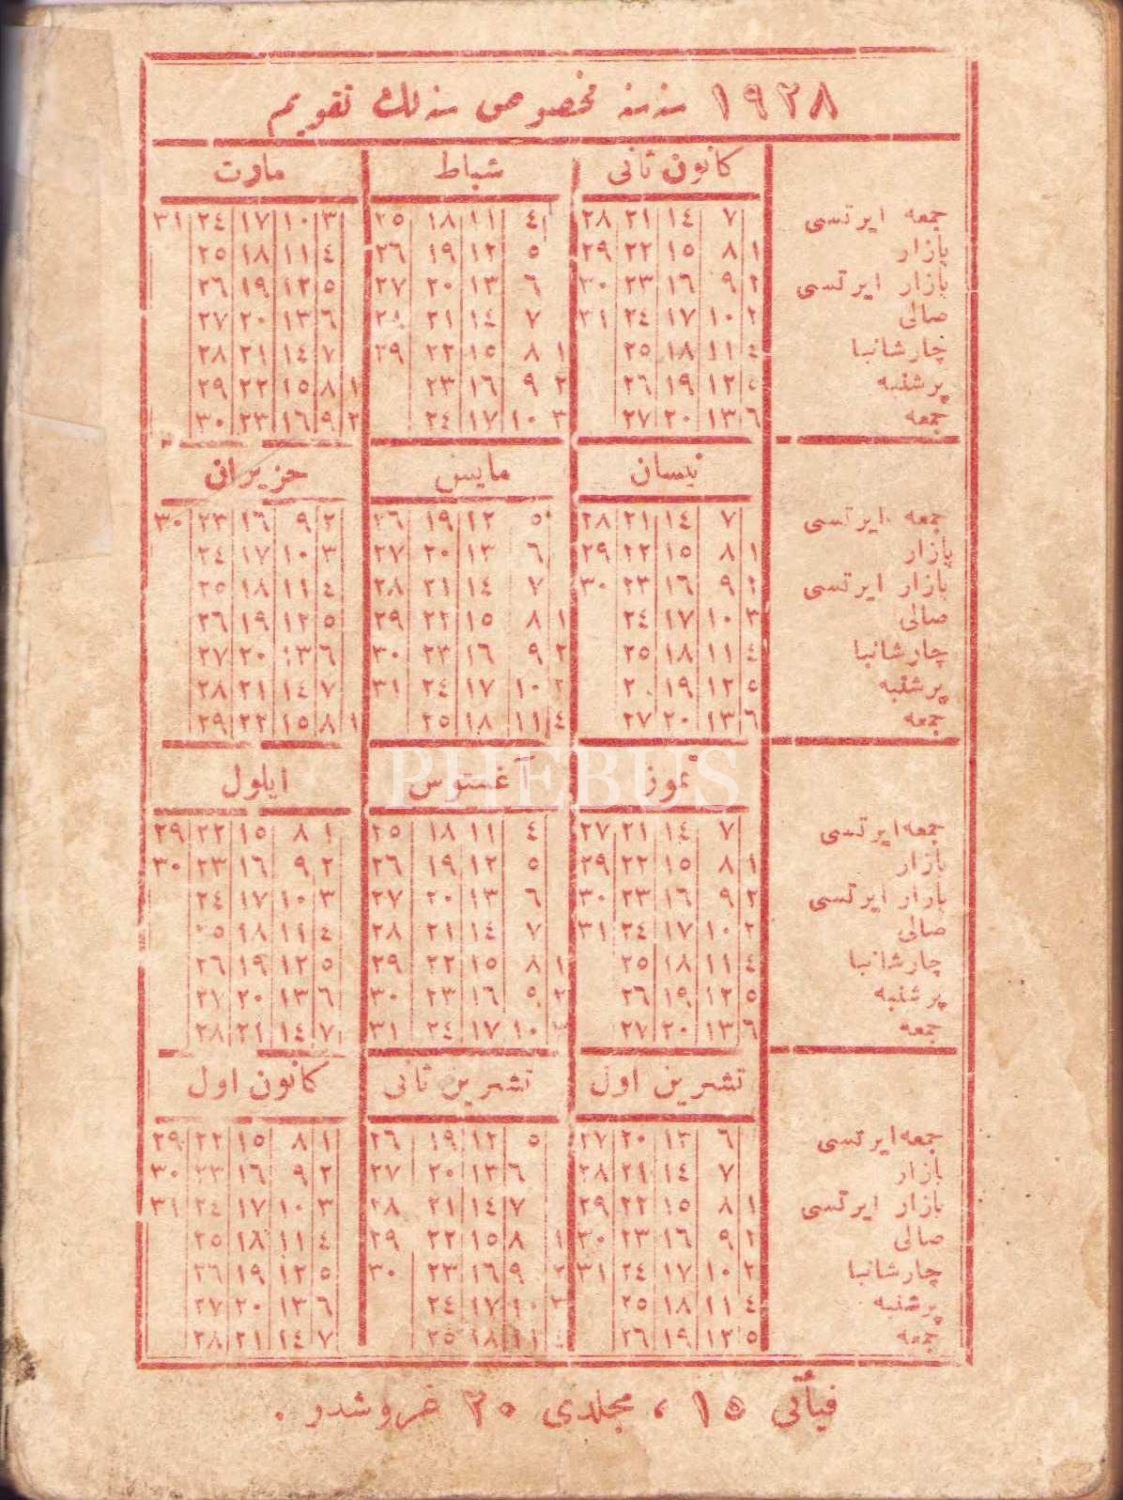 ١٩٢٨ سنه سنه مخصوص سنه لك تقويم
كانون ثانى شباط مارت
جمعه ايرتسى ٧ ١٤ ٢١ ٢٨ ٤ ١١ ١٨ ٢٥ ٣ ١٠ ١٧ ٢٤ ٣١
بازار ١ ٨ ١٥ ٢٢ ٢٩ ٥ ١٢ ١٩ ٢٦ ٤ ١١ ١٨ ٢٥
بازار ايرتسى ٢ ٩ ١٦ ٢٣ ٣٠ ٦ ١٣ ٢٠ ٢٧ ٥ ١٢ ١٩ ٢٦
صالى ٣ ١٠ ١٧ ٢٤ ٣١ ٧ ١٤ ٢١ ٢٨ ٦ ١٣ ٢٠ ٢٧
چارشانبا ٤ ١١ ١٨ ٢٥ ١ ٨ ١٥ ٢٢ ٢٩ ٧ ١٤ ٢١ ٢٨
پرشنبه ٥ ١٢ ١٩ ٢٦ ٢ ٩ ١٦ ٢٣ ١ ٨ ١٥ ٢٢ ٢٩
جمعه ٦ ١٣ ٢٠ ٢٧ ٣ ١٠ ١٧ ٢٤ ٢ ٩ ١٦ ٢٣ ٣٠
نيسان مايس حزيران
جمعه ايرتسى ٧ ١٤ ٢١ ٢٨ ٥ ١٢ ١٩ ٢٦ ٢ ٩ ١٦ ٢٣ ٣٠
بازار ١ ٨ ١٥ ٢٢ ٢٩ ٦ ١٣ ٢٠ ٢٧ ٣ ١٠ ١٧ ٢٤
بازار ايرتسى ٢ ٩ ١٦ ٢٣ ٣٠ ٧ ١٤ ٢١ ٢٨ ٤ ١١ ١٨ ٢٥
صالى ٣ ١٠ ١٧ ٢٤ ١ ٨ ١٥ ٢٢ ٢٩ ٥ ١٢ ١٩ ٢٦
چارشانبا ٤ ١١ ١٨ ٢٥ ٢ ٩ ١٦ ٢٣ ٣٠ ٦ ١٣ ٢٠ ٢٧
پرشنبه ٥ ١٢ ١٩ ٣ ١٠ ١٧ ٢٤ ٣١ ٧ ١٤ ٢١ ٢٨
جمعه ٦ ١٣ ٢٠ ٢٧ ٤ ١١ ١٨ ٢٥ ١ ٨ ١٥ ٢٢ ٢٩
PHEBUS
تموز آغستوس ايلول
جمعه ايرتسى ٧ ١٤ ٢١ ٢٧ ٤ ١١ ١٨ ٢٥ ١ ٨ ١٥ ٢٢ ٢٩
بازار ١ ٨ ١٥ ٢٢ ٢٩ ٥ ١٢ ١٩ ٢٦ ٢ ٩ ١٦ ٢٣ ٣٠
بازار ايرتسى ٢ ٩ ١٦ ٢٣ ٣٠ ٦ ١٣ ٢٠ ٢٧ ٣ ١٠ ١٧ ٢٤
صالى ٣ ١٠ ١٧ ٢٤ ٣١ ٧ ١٤ ٢١ ٢٨ ٤ ١١ ١٨ ٢٥
چارشانبا ٤ ١١ ١٨ ٢٥ ١ ٨ ١٥ ٢٢ ٢٩ ٥ ١٢ ١٩ ٢٦
پرشنبه ٥ ١٢ ١٩ ٢٦ ٢ ٩ ١٦ ٢٣ ٣٠ ٦ ١٣ ٢٠ ٢٧
جمعه ٦ ١٣ ٢٠ ٢٧ ٣ ١٠ ١٧ ٢٤ ٣١ ٧ ١٤ ٢١ ٢٨
تشرين اول تشرين ثانى كانون اول
جمعه ايرتسى ٦ ١٣ ٢٠ ٢٧ ٥ ١٢ ١٩ ٢٦ ١ ٨ ١٥ ٢٢ ٢٩
بازار ٧ ١٤ ٢١ ٢٨ ٦ ١٣ ٢٠ ٢٧ ٢ ٩ ١٦ ٢٣ ٣٠
بازار ايرتسى ١ ٨ ١٥ ٢٢ ٢٩ ٧ ١٤ ٢١ ٢٨ ٣ ١٠ ١٧ ٢٤ ٣١
صالى ٢ ٩ ١٦ ٢٣ ٣٠ ١ ٨ ١٥ ٢٢ ٢٩ ٤ ١١ ١٨ ٢٥
چارشانبا ٣ ١٠ ١٧ ٢٤ ٣١ ٢ ٩ ١٦ ٢٣ ٣٠ ٥ ١٢ ١٩ ٢٦
پرشنبه ٤ ١١ ١٨ ٢٥ ٣ ١٠ ١٧ ٢٤ ٦ ١٣ ٢٠ ٢٧
جمعه ٥ ١٢ ١٩ ٢٦ ٤ ١١ ١٨ ٢٥ ٧ ١٤ ٢١ ٢٨
فيأتى ١٥ ، مجلدى ٢٠ غروشدر .